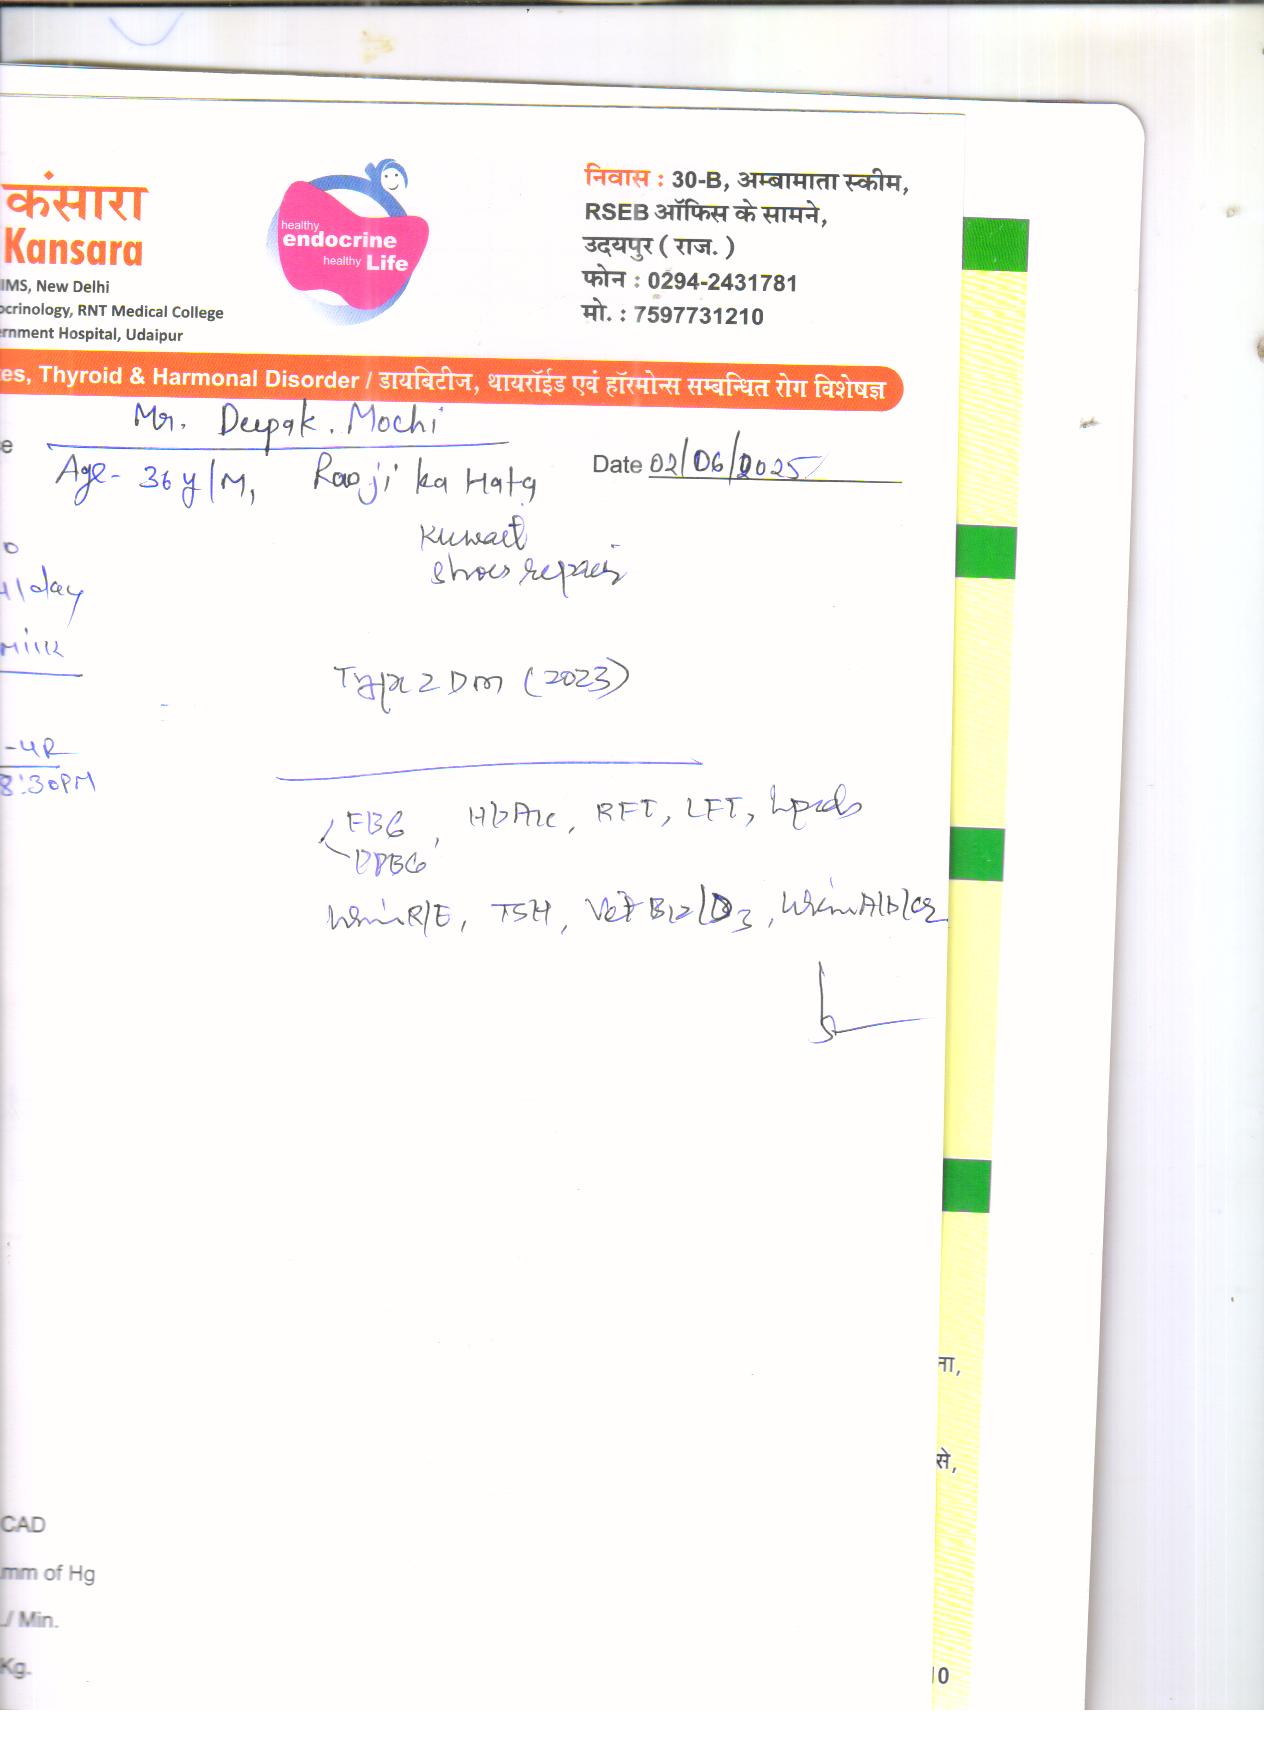 कंसारा
Kansara
IMS, New Delhi
ocrinology, RNT Medical College
ernment Hospital, Udaipur
healthy
endocrine
healthy Life
निवास : 30-B, अम्बामाता स्कीम,
RSEB ऑफिस के सामने,
उदयपुर ( राज. )
फोन : 0294-2431781
मो. : 7597731210
es, Thyroid & Harmonal Disorder / डायबिटीज, थायरॉईड एवं हॉरमोन्स सम्बन्धित रोग विशेषज्ञ
e Mr. Deepak. Mochi
Date 02/06/2025
Age- 36 y/M, Raoji ka Hata
Kuwait
shoes repair
/day
Milk
Type 2 DM (2023)
-4R
8:30PM
FBG, HbA1c, RFT, LFT, Lipids
PPBG
Urine R/E, TSH, Vit B12/D3, Urine Alb/Cr
ना,
से,
CAD
mm of Hg
./ Min.
Kg.
10